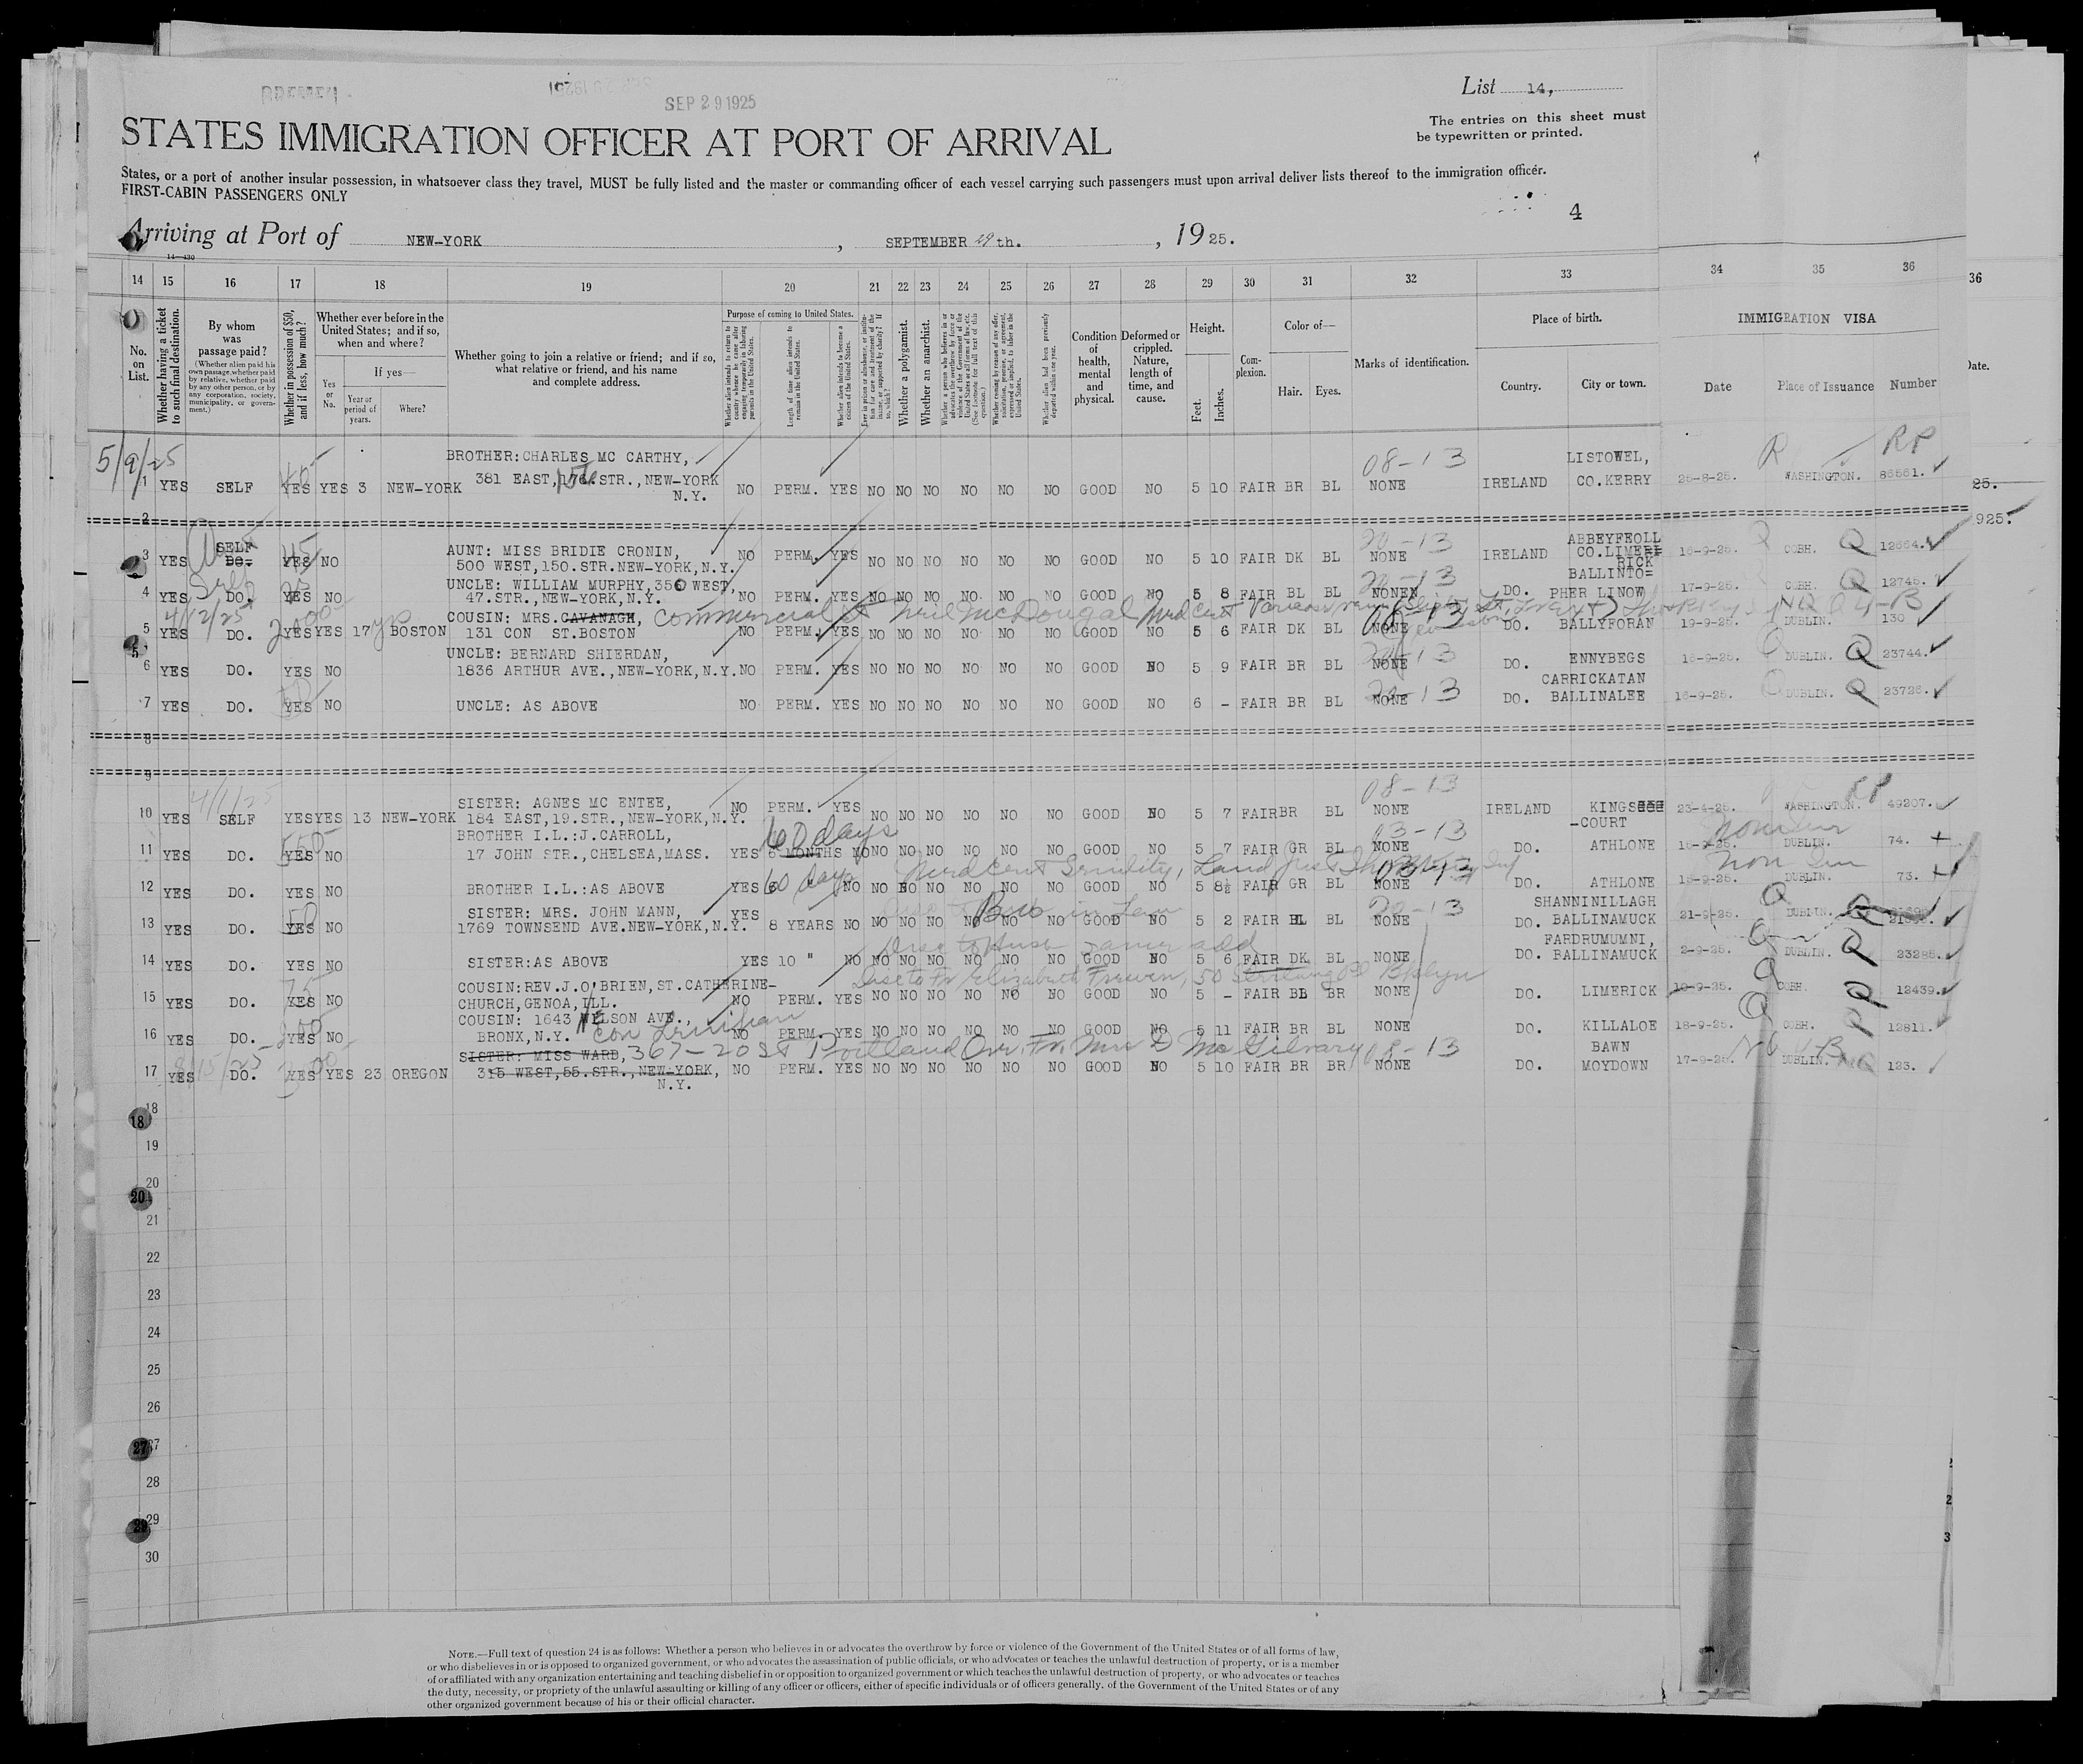 SEP 29 1925
List 14,
The entries on this sheet must
be typewritten or printed.
STATES IMMIGRATION OFFICER AT PORT OF ARRIVAL
States, or a port of another insular possession, in whatsoever class they travel, MUST be fully listed and the master or commanding officer of each vessel carrying such passengers must upon arrival deliver lists thereof to the immigration officer.
FIRST-CABIN PASSENGERS ONLY
4
Arriving at Port of NEW-YORK, SEPTEMBER 29th., 1925.
14 15 16 17 18 19 20 21 22 23 24 25 26 27 28 29 30 31 32 33 34 35 36
No. on List.
Whether having a ticket to such final destination.
By whom was passage paid?
(Whether alien paid his own passage, whether paid by relative, whether paid by any other person, or by any corporation, society, municipality, or government.)
Whether in possession of $50, and if less, how much?
Whether ever before in the United States; and if so, when and where?
Yes or No.
If yes—
Year or period of years.
Where?
Whether going to join a relative or friend; and if so, what relative or friend, and his name and complete address.
Purpose of coming to United States.
Length of time alien intends to remain in the United States.
Whether alien intends to become a citizen of the United States.
Whether a polygamist.
Whether an anarchist.
Condition of health, mental and physical.
Deformed or crippled. Nature, length of time, and cause.
Height.
Feet.
Inches.
Complexion.
Color of—
Hair. Eyes.
Marks of identification.
Place of birth.
Country. City or town.
IMMIGRATION VISA
Date Place of Issuance Number
36
Date.
5/9/25
BROTHER: CHARLES MC CARTHY, 08-13 LISTOWEL, R RP
1 YES SELF YES YES 3 NEW-YORK 381 EAST, STR., NEW-YORK N.Y. NO PERM. YES NO NO NO NO NO NO GOOD NO 5 10 FAIR BR BL NONE IRELAND CO.KERRY 25-8-25. WASHINGTON. 86561.
25.
2
925.
SELF AUNT: MISS BRIDIE CRONIN, 20-13 ABBEYFEOLL
3 YES DO. YES NO 500 WEST,150.STR.NEW-YORK,N.Y. NO PERM. YES NO NO NO NO NO NO GOOD NO 5 10 FAIR DK BL NONE IRELAND CO.LIMERICK 16-9-25. COBH. Q 12664.
UNCLE: WILLIAM MURPHY,350 WEST, 20-13 BALLINTO=
4 YES DO. YES NO 47.STR.,NEW-YORK,N.Y. NO PERM. YES NO NO NO NO NO NO GOOD NO 5 8 FAIR BL BL NONE DO. PHER LINOW 17-9-25. COBH. Q 12745.
4/12/25 COUSIN: MRS.CAVANAGH, Commercial St Neil McDougal
5 YES DO. YES YES 17 BOSTON 131 CON ST.BOSTON NO PERM. YES NO NO NO NO NO NO GOOD NO 5 6 FAIR DK BL NONE DO. BALLYFORAN 19-9-25. DUBLIN. 130
5
UNCLE: BERNARD SHIERDAN, 20-13 ENNYBEGS
6 YES DO. YES NO 1836 ARTHUR AVE.,NEW-YORK,N.Y. NO PERM. YES NO NO NO NO NO NO GOOD NO 5 9 FAIR BR BL NONE DO. 16-9-25. DUBLIN. Q 23744.
CARRICKATAN
7 YES DO. YES NO UNCLE: AS ABOVE NO PERM. YES NO NO NO NO NO NO GOOD NO 6 - FAIR BR BL NONE 20-13 DO. BALLINALEE 16-9-25. DUBLIN. Q 23726.
8
9
4/1/25 SISTER: AGNES MC ENTEE, 08-13 RP
10 YES SELF YES YES 13 NEW-YORK 184 EAST,19.STR.,NEW-YORK,N.Y. NO PERM. YES NO NO NO NO NO NO GOOD NO 5 7 FAIR BR BL NONE IRELAND KINGS-COURT 23-4-25. WASHINGTON. 49207.
BROTHER I.L.:J.CARROLL, 60 days 03-13
11 YES DO. YES NO 17 JOHN STR.,CHELSEA,MASS. YES 6 MONTHS NO NO NO NO NO NO NO GOOD NO 5 7 FAIR GR BL NONE DO. ATHLONE 16-9-25. DUBLIN. 74.
60 days
12 YES DO. YES NO BROTHER I.L.:AS ABOVE YES NO NO NO NO NO NO NO GOOD NO 5 8½ FAIR GR BL NONE DO. ATHLONE 16-9-25. DUBLIN. 73.
SISTER: MRS. JOHN MANN, 20-13 SHANNINILLAGH
13 YES DO. YES NO 1769 TOWNSEND AVE.NEW-YORK,N.Y. YES 8 YEARS NO NO NO NO NO NO NO GOOD NO 5 2 FAIR BL BL NONE DO. BALLINAMUCK 21-9-25. DUBLIN. Q
FARDRUMUMNI,
14 YES DO. YES NO SISTER:AS ABOVE YES 10 " NO NO NO NO NO NO NO GOOD NO 5 6 FAIR DK BL NONE DO. BALLINAMUCK 2-9-25. DUBLIN. Q 23286.
COUSIN:REV.J.O'BRIEN,ST.CATHERINE-
15 YES DO. YES NO CHURCH,GENOA,ILL. NO PERM. YES NO NO NO NO NO NO GOOD NO 5 - FAIR BL BR NONE DO. LIMERICK 10-9-25. COBH. Q 12439.
COUSIN: 1643 NELSON AVE.,
16 YES DO. YES NO BRONX,N.Y. NO PERM. YES NO NO NO NO NO NO GOOD NO 5 11 FAIR BR BL NONE DO. KILLALOE 18-9-25. COBH. Q 12811.
8/15/25 SISTER: MISS WARD, 367-20 St Portland 08-13 BAWN
17 YES DO. YES YES 23 OREGON 315 WEST,55.STR.,NEW-YORK, N.Y. NO PERM. YES NO NO NO NO NO NO GOOD NO 5 10 FAIR BR BR NONE DO. MOYDOWN 17-9-25. DUBLIN. 123.
18
18
19
20
20
21
22
23
24
25
26
27
28
29
29
30
NOTE.—Full text of question 24 is as follows: Whether a person who believes in or advocates the overthrow by force or violence of the Government of the United States or of all forms of law,
or who disbelieves in or is opposed to organized government, or who advocates the assassination of public officials, or who advocates or teaches the unlawful destruction of property, or is a member
of or affiliated with any organization entertaining and teaching disbelief in or opposition to organized government or which teaches the unlawful destruction of property, or who advocates or teaches
the duty, necessity, or propriety of the unlawful assaulting or killing of any officer or officers, either of specific individuals or of officers generally, of the Government of the United States or of any
other organized government because of his or their official character.